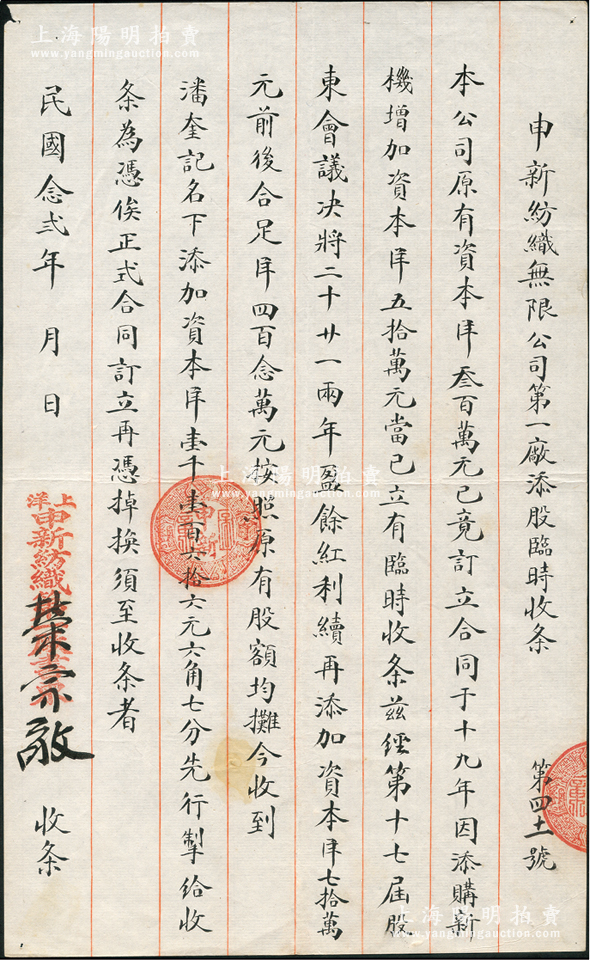 申新紡織無限公司第一廠添股臨時收条
第四十一號
本公司原有資本洋叁百萬元已竟訂立合同于十九年因添購新
機增加資本洋五拾萬元當已立有臨時收条茲經第十七屆股
東會議决將二十廿一兩年盈餘紅利續再添加資本洋七拾萬
元前後合足洋四百念萬元按照原有股額均攤今收到
潘奎記名下添加資本洋壹千壹百六拾六元六角七分先行掣給收
条為憑俟正式合同訂立再憑掉換須至收条者
民國念弍年 月 日
上洋
申新紡織
榮宗敬 收条
上海陽明拍賣
www.yangmingauction.com
上海陽明拍賣
www.yangmingauction.com
上海陽明拍賣
www.yangmingauction.com